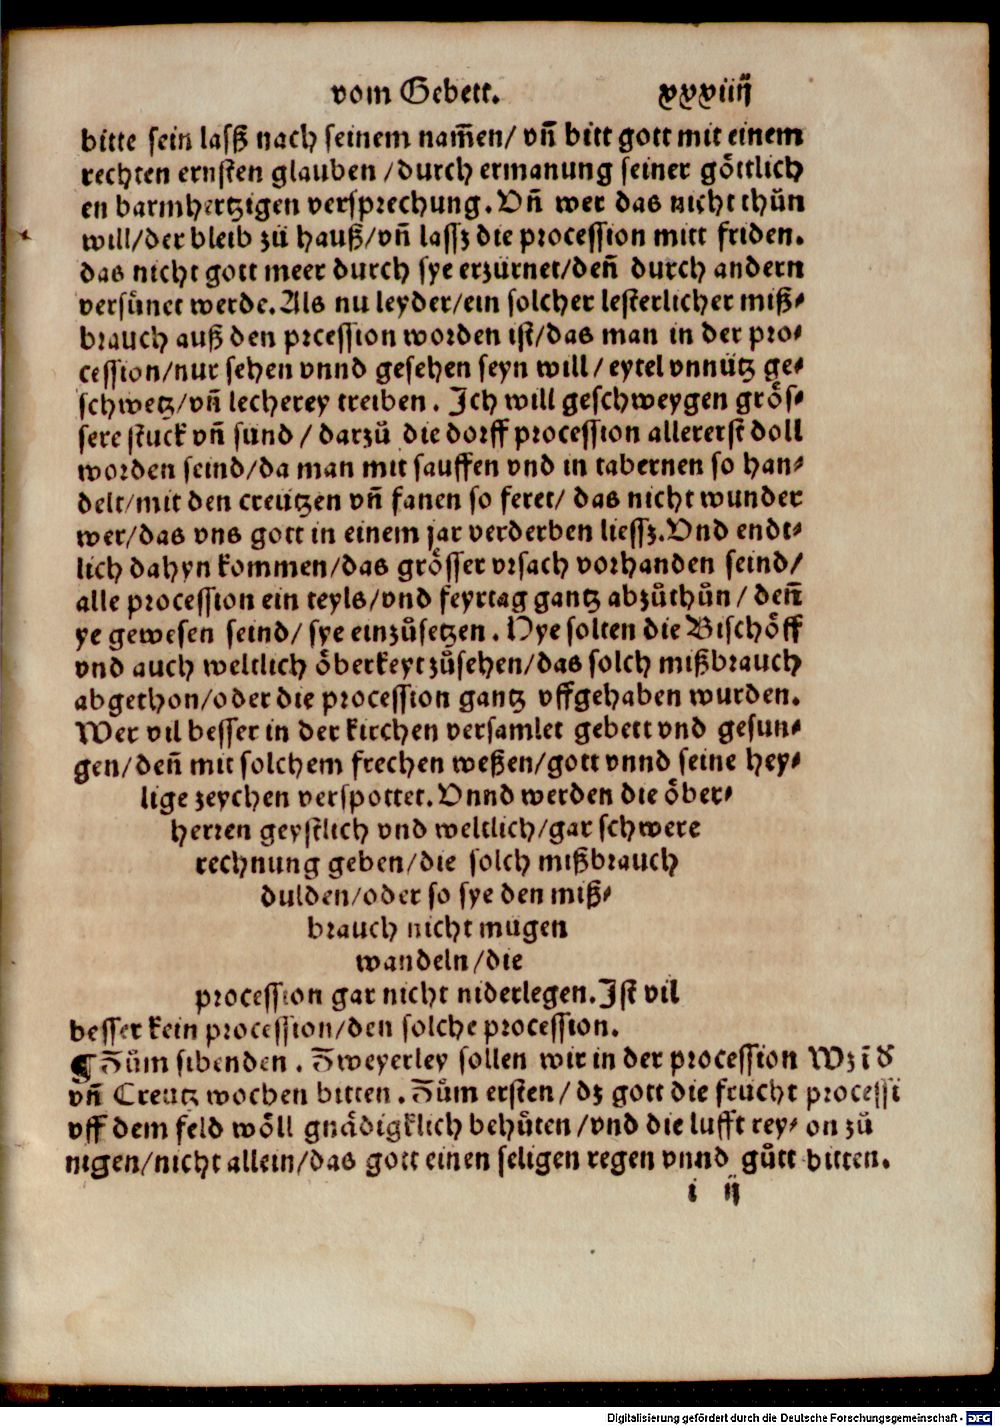 vom Gebett. xxxiiij
bitte sein lasß nach seinem nam̄en/ vn̄ bitt gott mit einem
rechten ernsten glauben /durch ermanung seiner göttlich
en barmhertzigen versprechung. Vn̄ wer das nicht thůn
will/der bleib zů hauß/vn̄ lassz die procession mitt friden.
das nicht gott meer durch sye erzürnet/den̄ durch andern
versünet werde. Als nu leyder/ein solcher lesterlicher miß⸗
brauch auß den prcession worden ist/das man in der pro⸗
cession/nur sehen vnnd gesehen seyn will/ eytel vnnütz ge⸗
schwetz/vn̄ lecherey treiben. Ich will geschweygen grös⸗
sere stuck vn̄ sund/ darzů die dorff procession allererst doll
worden seind/da man mit sauffen vnd in tabernen so han⸗
delt/mit den creützen vn̄ fanen so feret/ das nicht wunder
wer/das vns gott in einem jar verderben liessz. Vnd endt⸗
lich dahyn kommen/das grösser vrsach vorhanden seind/
alle procession ein teyls/vnd feyrtag gantz abzůthůn/ den̄
ye gewesen seind/ sye einzůsetzen. Hye solten die Bischöff
vnd auch weltlich öberkeyt zůsehen/das solch mißbrauch
abgethon/oder die procession gantz vffgehaben wurden.
Wer vil besser in der kirchen versamlet gebett vnd gesun⸗
gen/den̄ mit solchem frechen weßen/gott vnnd seine hey⸗
lige zeychen verspottet. Vnnd werden die öber⸗
herren geystlich vnd weltlich/gar schwere
rechnung geben/die solch mißbrauch
dulden/oder so sye den miß⸗
brauch nicht mügen
wandeln/die
procession gar nicht niderlegen. Ist vil
besser kein procession/den solche procession.
¶ Zům sibenden. Zweyerley sollen wir in der procession Wz ī d'
vn̄ Creutz wochen bitten. Zům ersten/ dz gott die frücht processi
vff dem feld wöll gnädigklich behůten/vnd die lufft rey⸗ on zů
nigen/nicht allein/das gott einen seligen regen vnnd gůtt bitten.
i ij
Digitalisierung gefördert durch die Deutsche Forschungsgemeinschaft - DFG